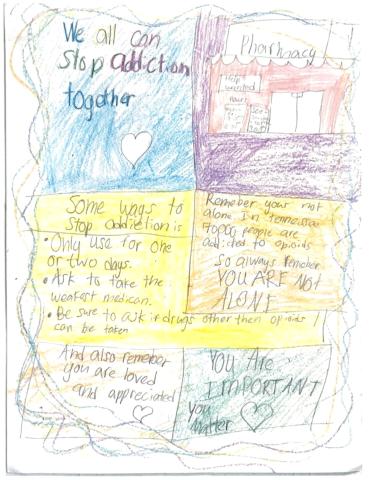 We all can
stop addiction
together
Pharmacy
Help
wanted
Some ways to
stop addiction is
• Only use for one
or two days.
• Ask to take the
weakest medican.
• Be sure to ask if drugs other then opioids
can be taken
Remember your not
alone In tennessee
people are
addicted to opioids
so always remeber
YOU ARE NOT
ALONE
And also remember
you are loved
and appreciated
You Are
IMPORTANT
You
Matter